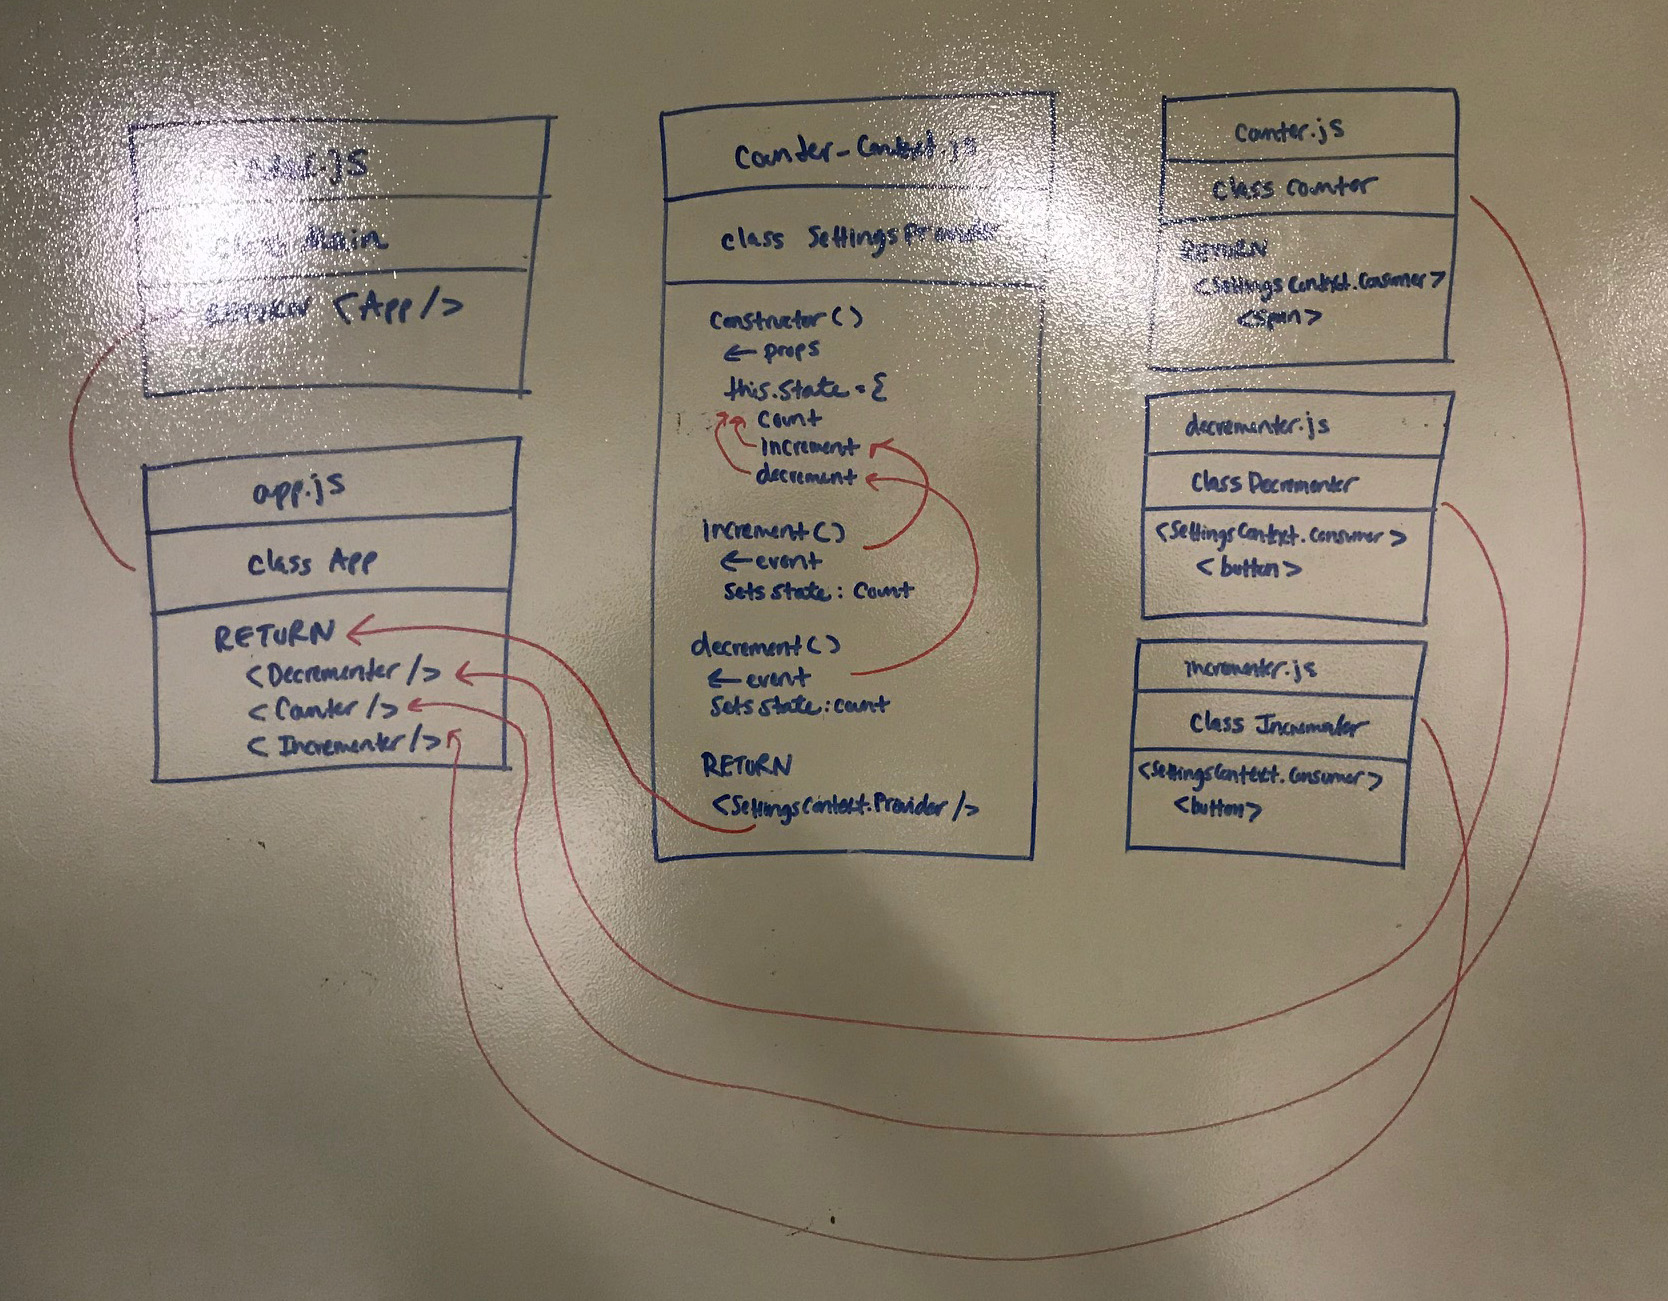 .js
class Main
RETURN <App/>
app.js
class App
RETURN
<Decrementer/>
<Counter/>
<Incrementer/>
Counter-Context.js
class SettingsProvider
Constructor()
← props
this.state = {
Count
increment
decrement
increment()
← event
Sets state: Count
decrement()
← event
Sets state: count
RETURN
<SettingsContext.Provider/>
Counter.js
Class Counter
RETURN
<Settings Context.Consumer>
<span>
decrementer.js
Class Decrementer
<SettingsContext.Consumer>
<button>
incrementer.js
Class Incrementer
<SettingsContext.Consumer>
<button>